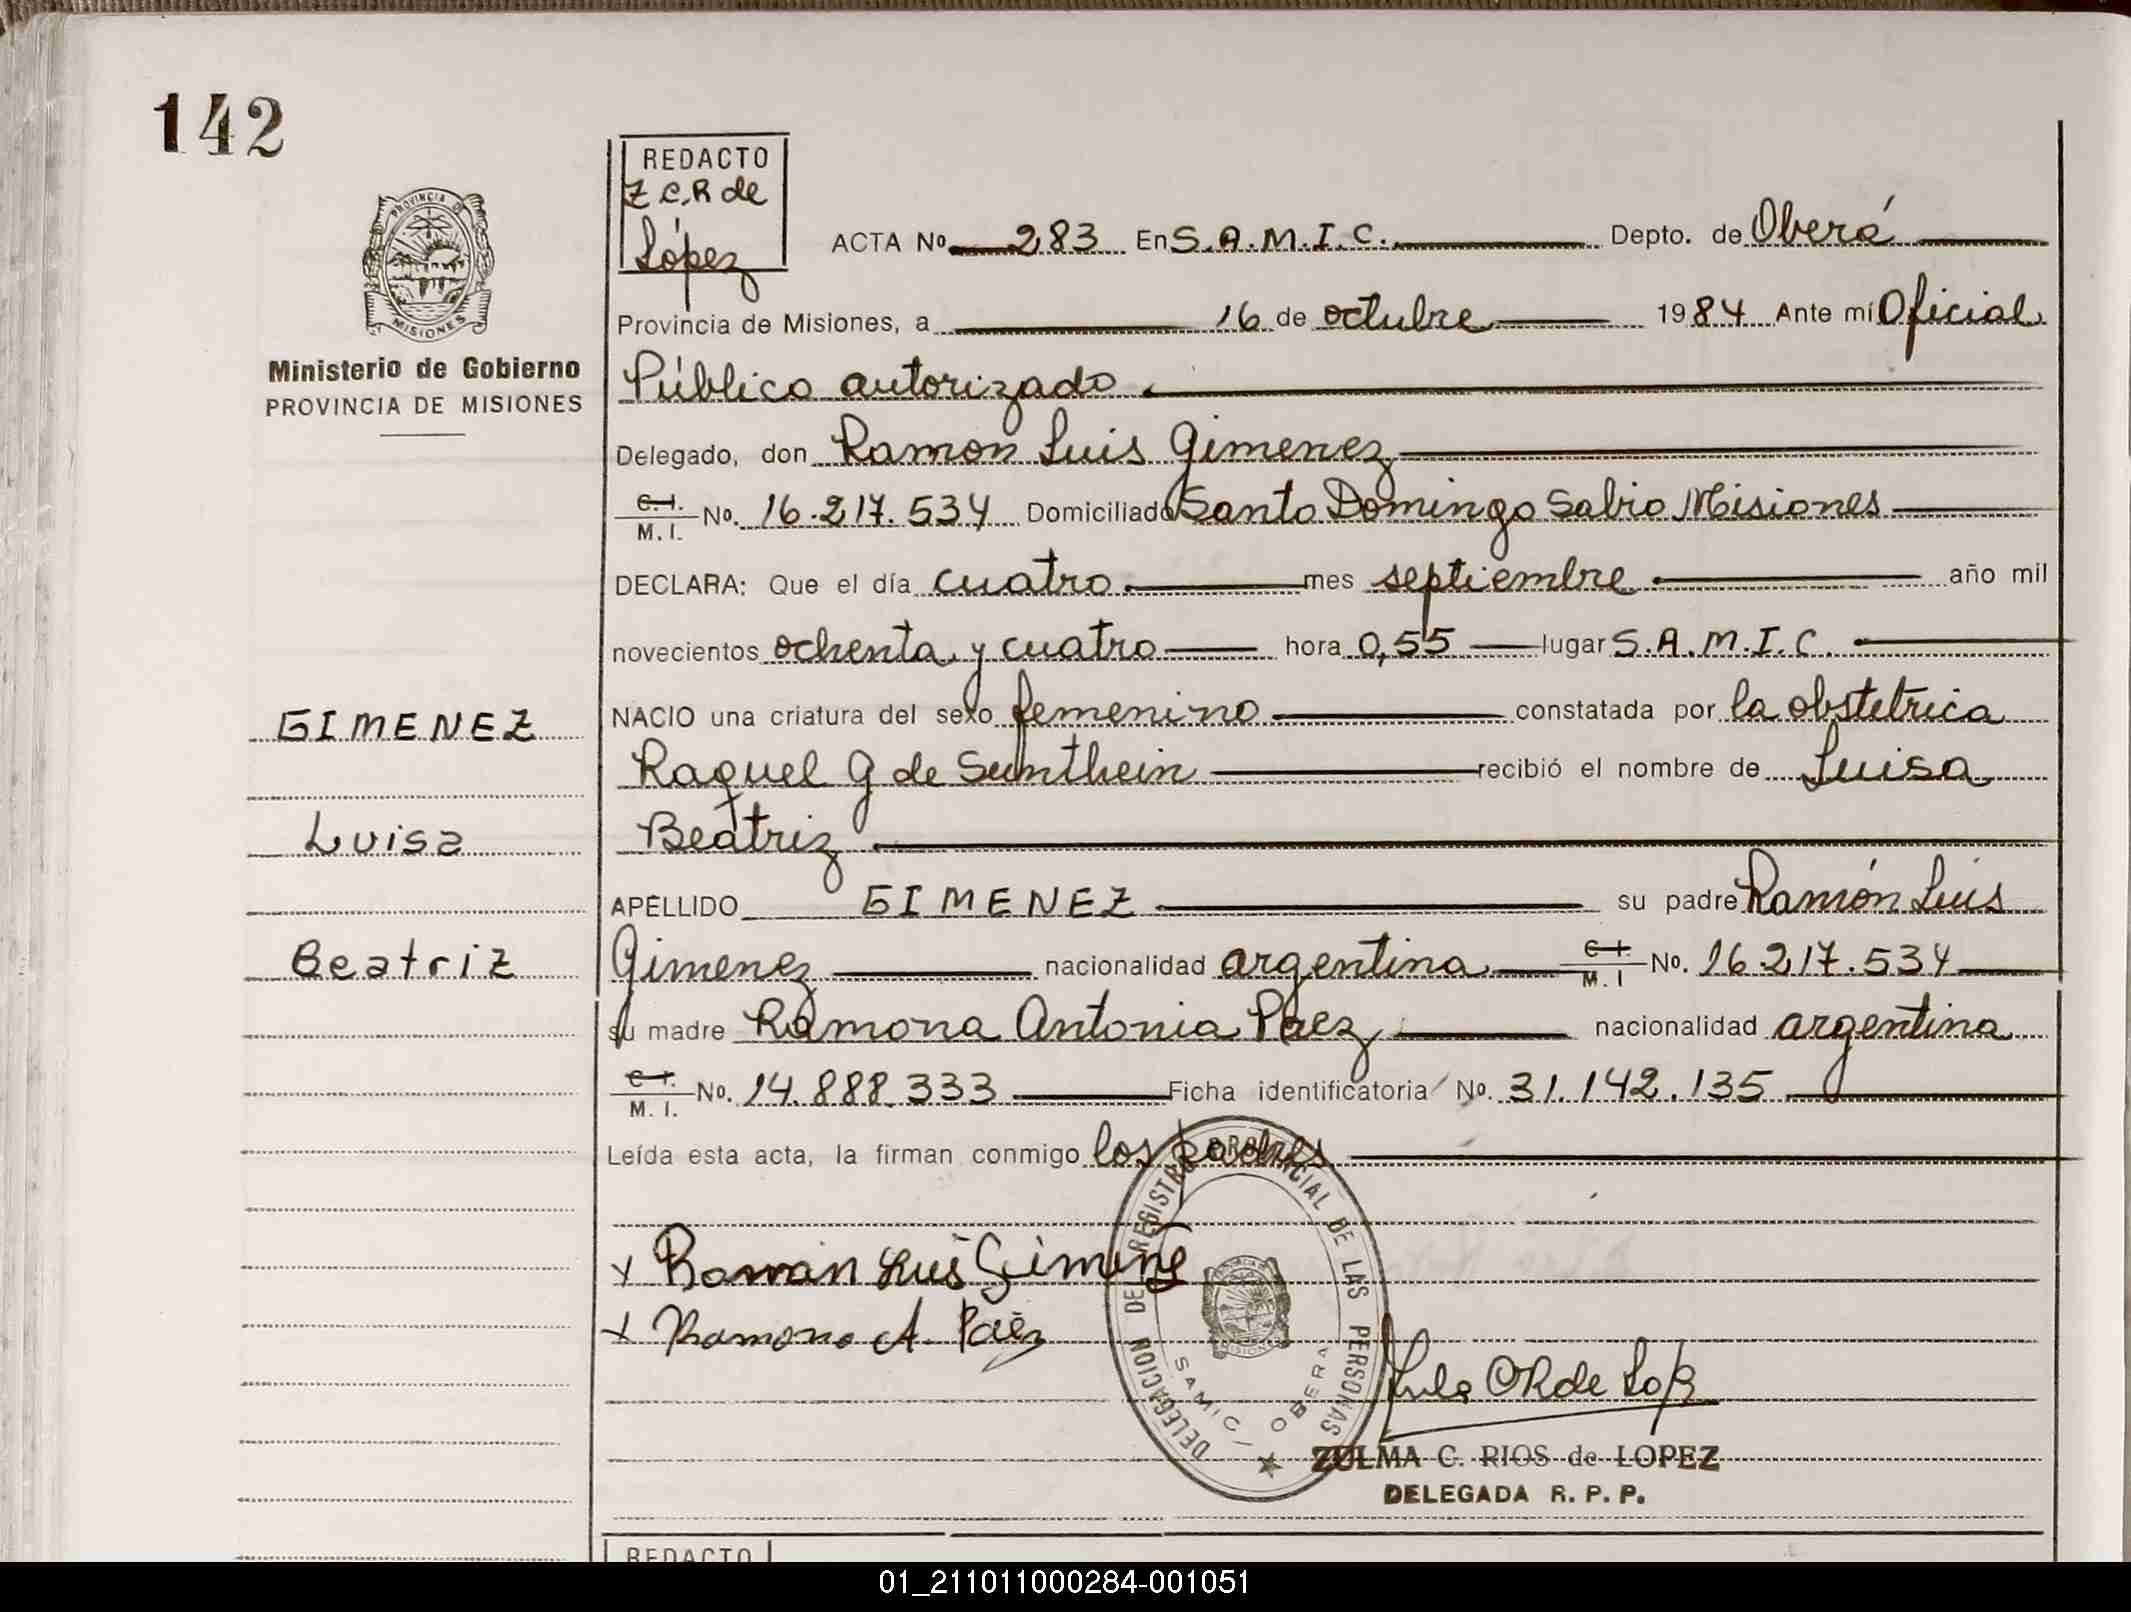 142
REDACTO
Z C.R de
López
ACTA No. 283 En S.A.M.I.C. Depto. de Oberá
PROVINCIA DE
MISIONES
Ministerio de Gobierno
PROVINCIA DE MISIONES
Provincia de Misiones, a 16 de octubre 1984 Ante mí Oficial
Público autorizado
Delegado, don Ramon Luis Gimenez
C.I.
M.I. No. 16.217.534 Domiciliado Santo Domingo Sabio Misiones
DECLARA: Que el día cuatro mes septiembre año mil
novecientos ochenta y cuatro hora 0,55 lugar S.A.M.I.C.
GIMENEZ
NACIO una criatura del sexo femenino constatada por la obstetrica
Raquel G de Sunthein recibió el nombre de Luisa
Luisa
Beatriz
APELLIDO GIMENEZ su padre Ramón Luis
Beatriz
Gimenez nacionalidad argentina C.I. M.I No. 16.217.534
su madre Ramona Antonia Paez nacionalidad argentina
C.I.
M.I. No. 14.888.333 Ficha identificatoria No. 31.142.135
Leída esta acta, la firman conmigo los padres
x Roman Luis Gimenes
x Ramona A. Paéz
DELEGACION DE REGISTRO PROVINCIAL DE LAS PERSONAS
SAMIC / OBERA
MISIONES
ZULMA C. RIOS de LOPEZ
DELEGADA R. P. P.
REDACTO
01_211011000284-001051